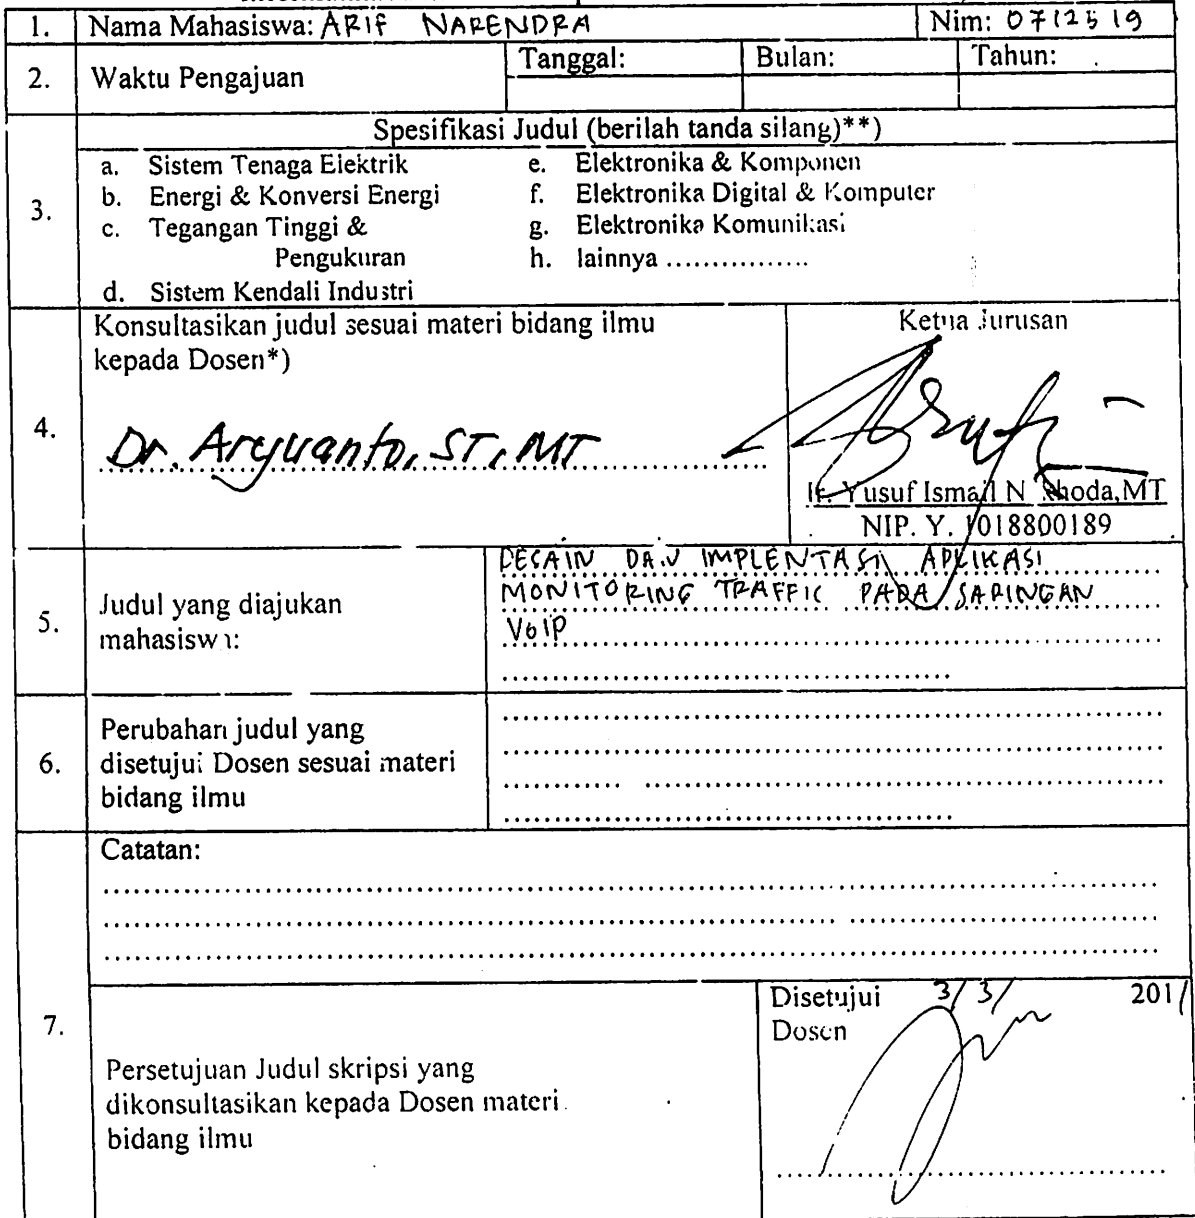 1. Nama Mahasiswa: ARIF NARENDRA Nim: 0712519
2. Waktu Pengajuan Tanggal: Bulan: Tahun:
3. Spesifikasi Judul (berilah tanda silang)**)
a. Sistem Tenaga Elektrik
b. Energi & Konversi Energi
c. Tegangan Tinggi &
Pengukuran
d. Sistem Kendali Industri
e. Elektronika & Komponen
f. Elektronika Digital & Komputer
g. Elektronika Komunikasi
h. lainnya ................
4. Konsultasikan judul sesuai materi bidang ilmu
kepada Dosen*)
Dr. Aryuanto, ST, MT
Ketua Jurusan
Ir. Yusuf Ismail N MT
NIP. Y. 1018800189
5. Judul yang diajukan
mahasiswa:
DESAIN DAN IMPLENTASI APLIKASI
MONITORING TRAFFIC PADA JARINGAN
VoIP
6. Perubahan judul yang
disetujui Dosen sesuai materi
bidang ilmu
7. Catatan:
Persetujuan Judul skripsi yang
dikonsultasikan kepada Dosen materi
bidang ilmu
Disetujui 3/3/ 2011
Dosen